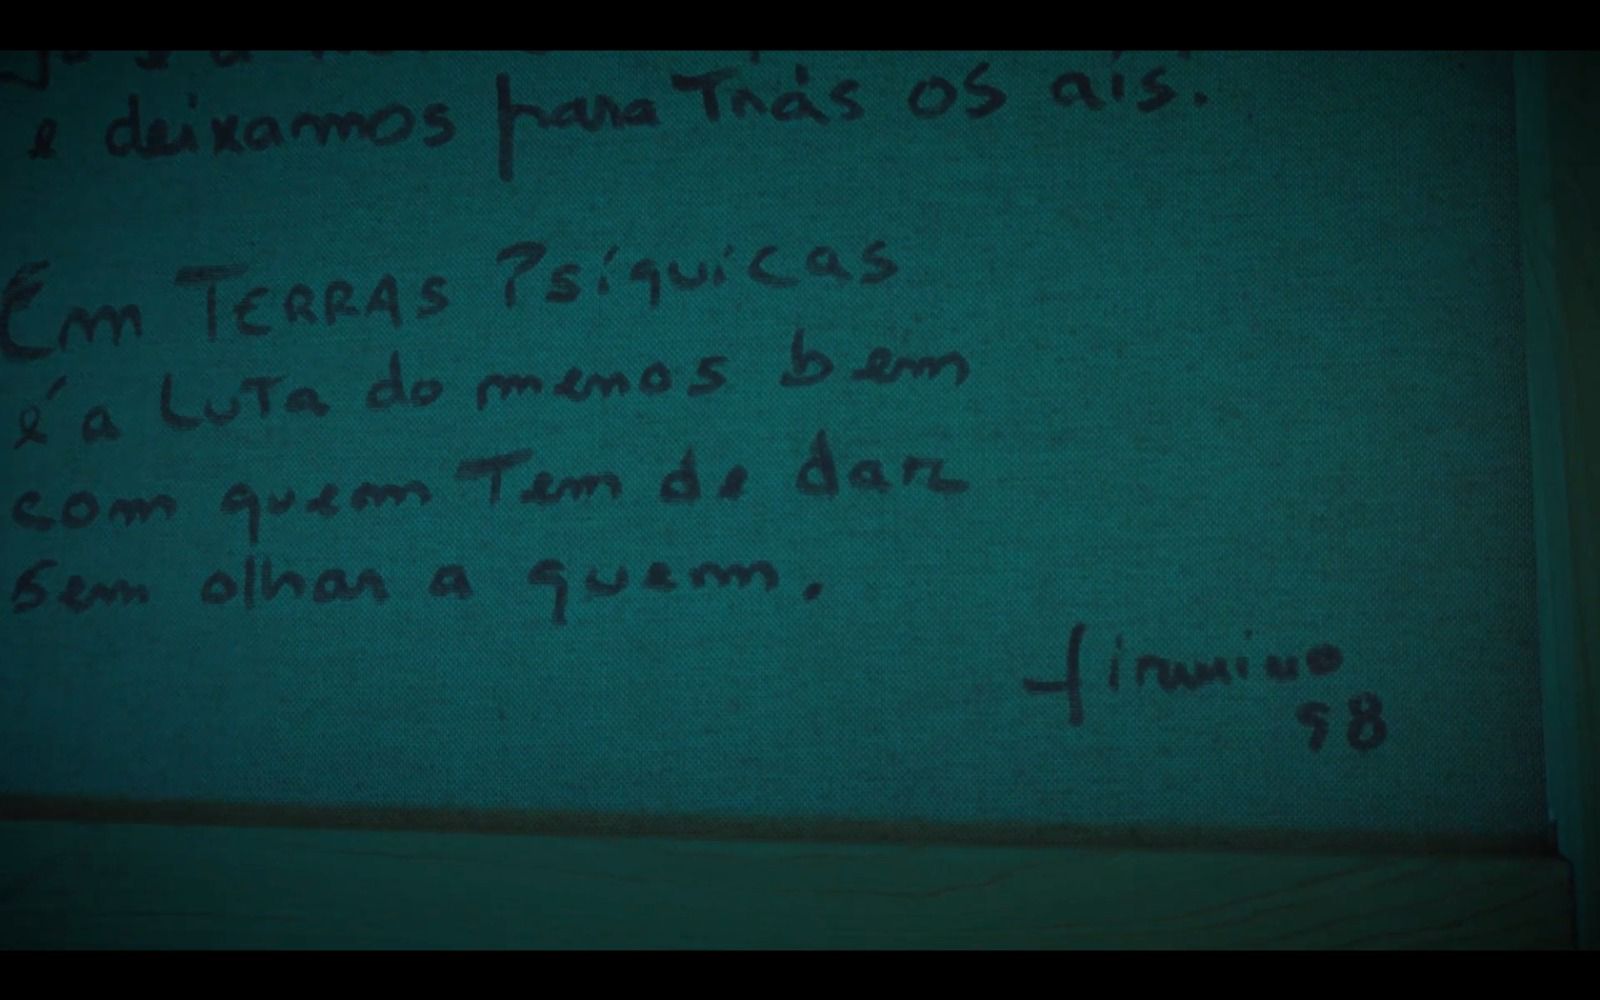 e deixamos para Trás os ais.
Em TERRAS Psíquicas
é a LuTa do menos bem
com quem Tem de dar
Sem olhar a quem.
firmino
98